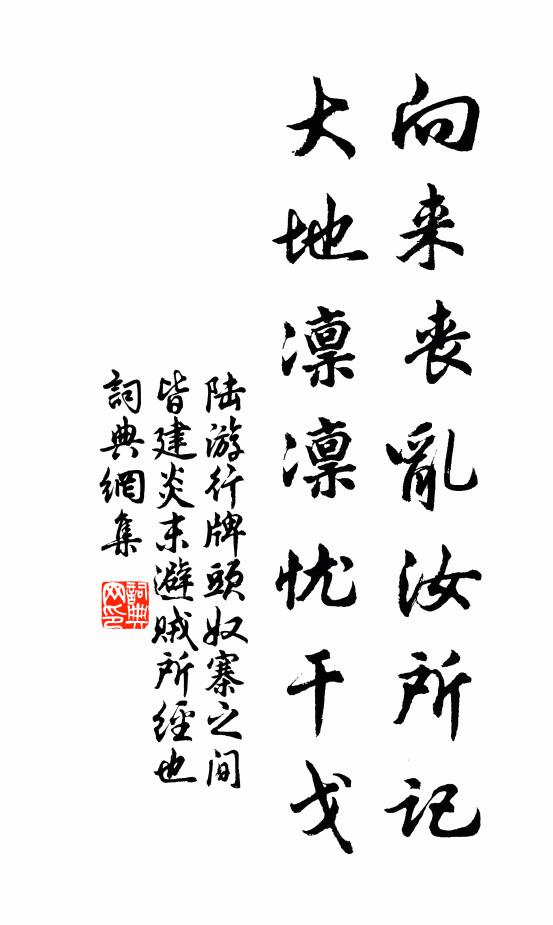 向来丧亂汝所记
大地凛凛忧干戈
陆游行牌頭奴寨之间
皆建炎末避贼所經也
詞典網集
詞典
网印